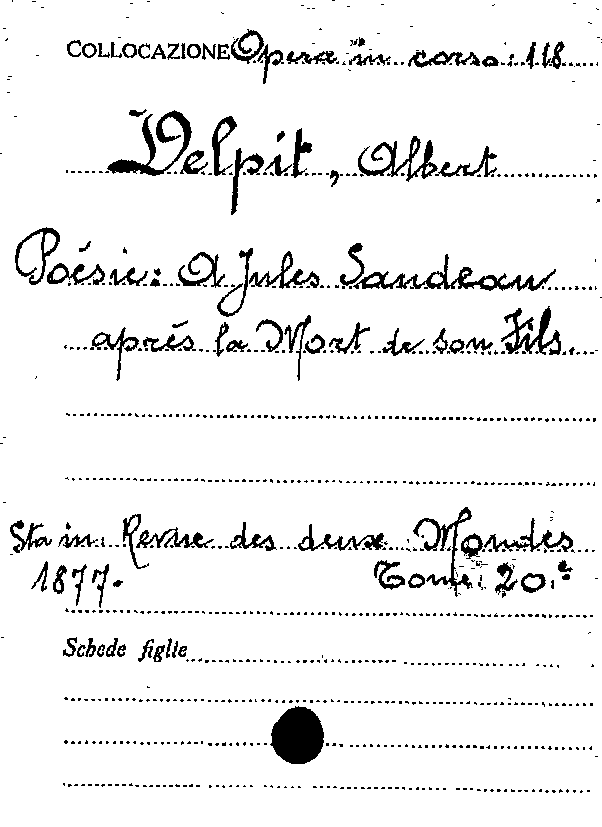 COLLOCAZIONE Opera in corso: 118
Delpit, Albert
Poésie: A Jules Sandeau
après la Mort de son Fils.
Sta in: Revue des deux Mondes
1877. Tome: 20.e
Schede figlie